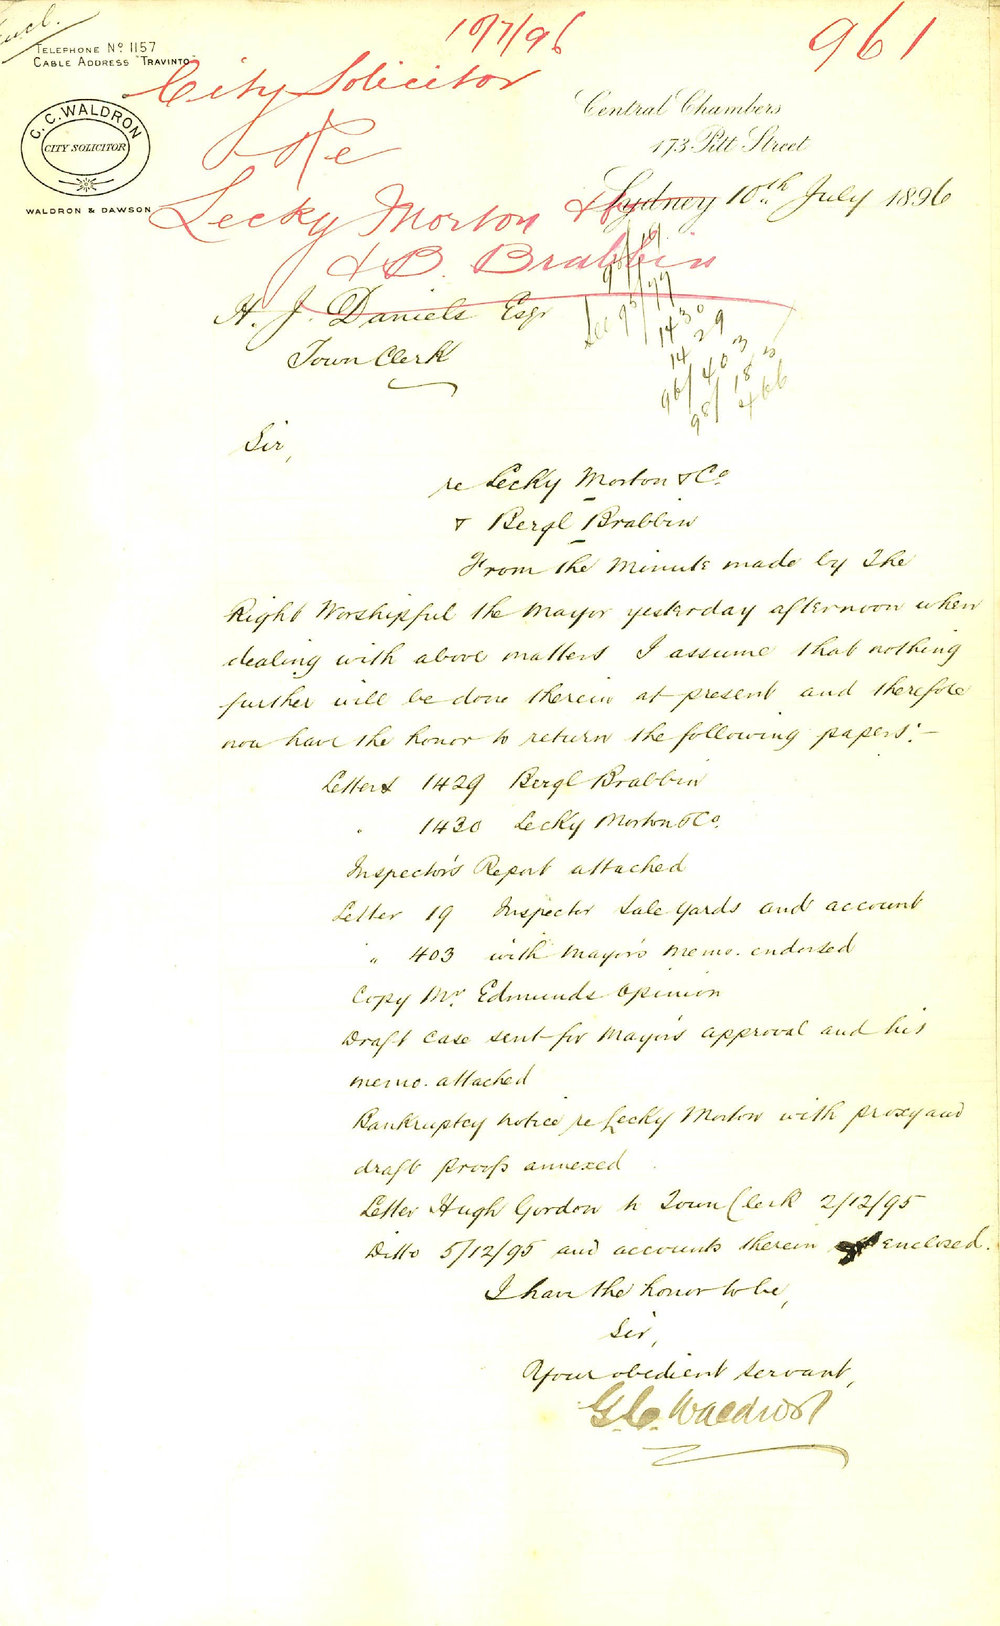 Encl.
10/7/96
961
TELEPHONE Nº 1157
CABLE ADDRESS "TRAVINTO"
City Solicitor
Re
Lecky Morton & Co
& B. Brabbin
C. C. WALDRON
CITY SOLICITOR
WALDRON & DAWSON
Central Chambers
173 Pitt Street
Sydney 10th July 1896
H. J. Daniels Esqr
Town Clerk
96/19
See 95/77
1430
1429
96/403
98/183
466
Sir,
re Lecky Morton & Co
& Bergl Brabbin
From the Minute made by The
Right Worshipful the Mayor yesterday afternoon when
dealing with above matters I assume that nothing
further will be done therein at present and therefore
now have the honor to return the following papers:-
Letters 1429 Bergl Brabbin
" 1430 Lecky Morton & Co.
Inspector's Report attached
Letter 19 Inspector Sale Yards and account
" 403 with Mayor's memo. endorsed
Copy Mr Edmunds Opinion
Draft Case sent for Mayor's approval and his
memo. attached
Bankruptcy notice re Lecky Morton with proxy and
draft proofs annexed
Letter Hugh Gordon to Town Clerk 2/12/95
Ditto 5/12/95 and accounts therein enclosed.
I have the honor to be,
Sir,
Your obedient servant,
G. C. Waldron